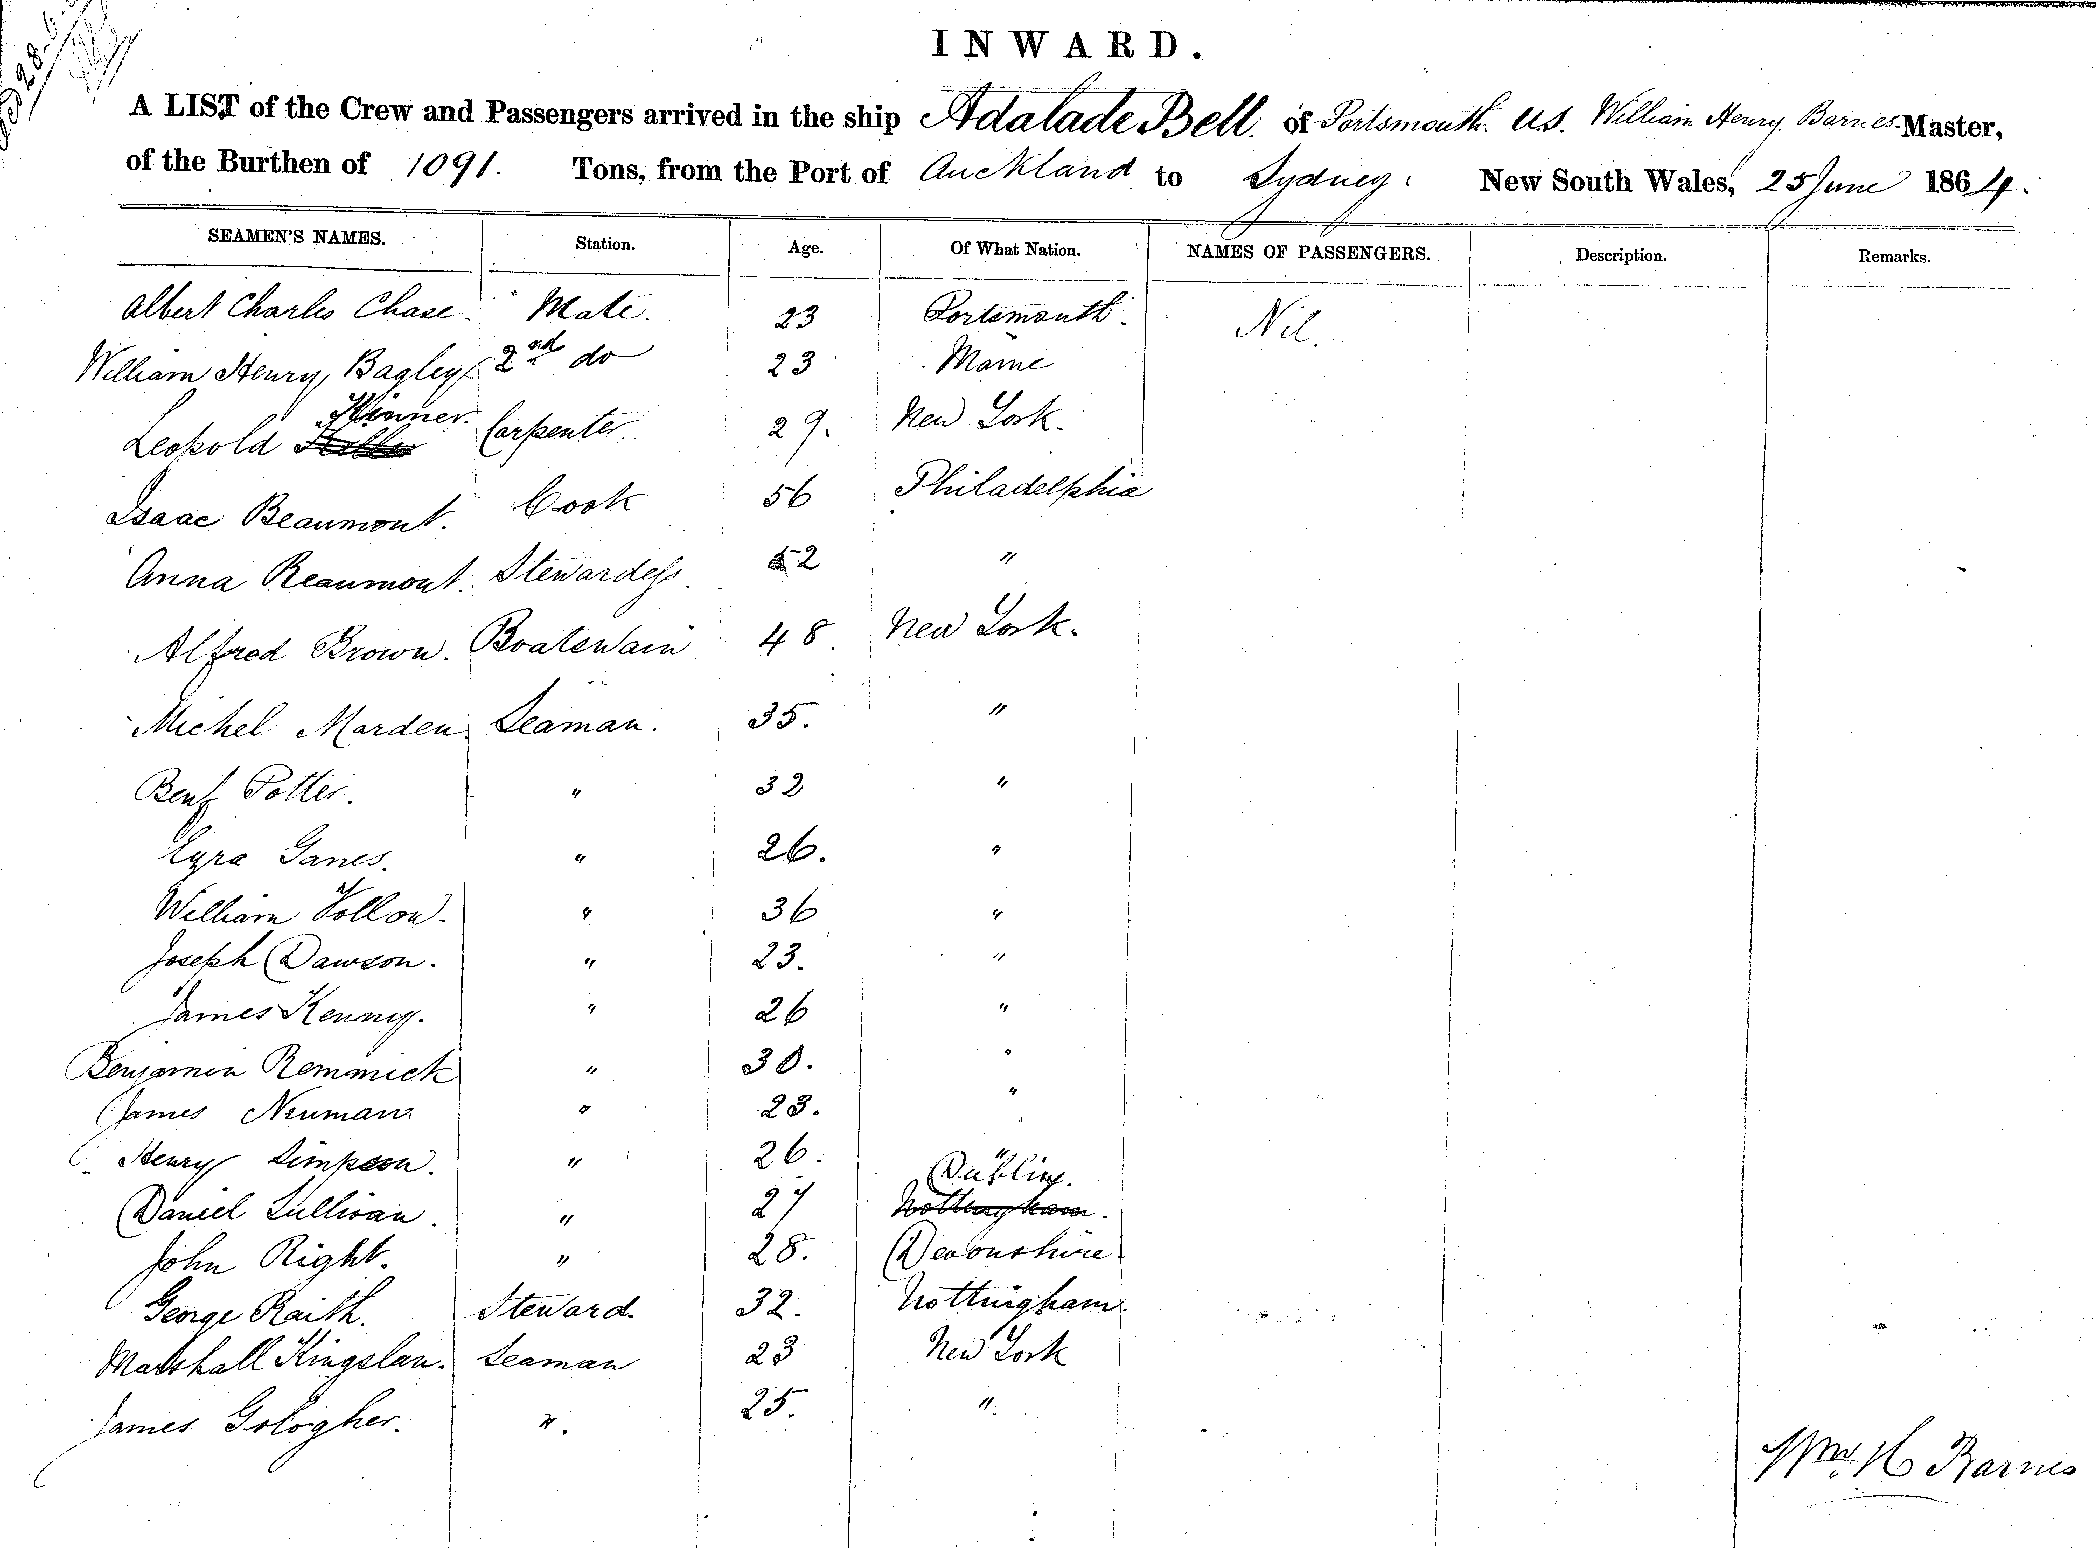 28
INWARD.
A LIST of the Crew and Passengers arrived in the ship Adalade Bell. of Portsmouth. US. William Henry Barnes Master,
of the Burthen of 1091. Tons, from the Port of Auckland to Sydney. New South Wales, 25 June 1864.
SEAMEN'S NAMES. Station. Age. Of What Nation. NAMES OF PASSENGERS. Description. Remarks.
Albert Charles Chase. Mate. 23 Portsmouth. Nil.
William Henry Bagley 2nd do 23 Maine
Leopold Kinner. Carpenter 29. New York.
Isaac Beaumont. Cook 56 Philadelphia
Anna Beaumont. Stewardess 52 "
Alfred Brown. Boatswain 48 New York.
Michel Marden Seaman. 35. "
Benj Potter. " 32 "
Ezra Ganes. " 26. "
William Vollow. " 36 "
Joseph Dawson. " 23. "
James Kenny. " 26 "
Benjamin Remmick " 30. "
James Neuman " 23. "
Henry Simpson. " 26. "
Daniel Sullivan. " 27 Dublin. Nottingham.
John Right. " 28. Devonshire
George Raith. Steward. 32. Nottingham.
Marshall Kingslan. Seaman 23 New York
James Gologher. ". 25. "
Wm. H Barnes